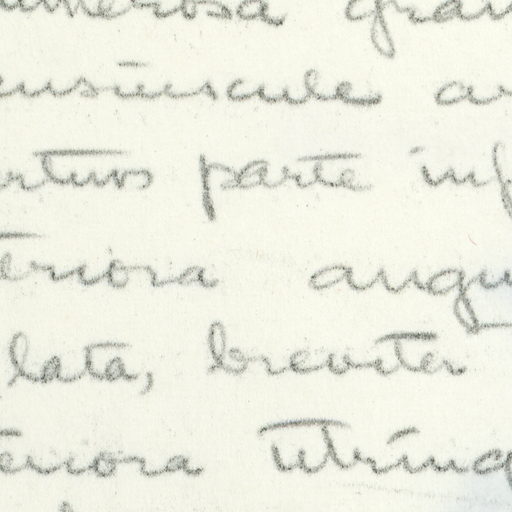 umerosa gran
ensiuscule a
rtius parte inf
teriora angu
lata, breviter
teriora utrinq